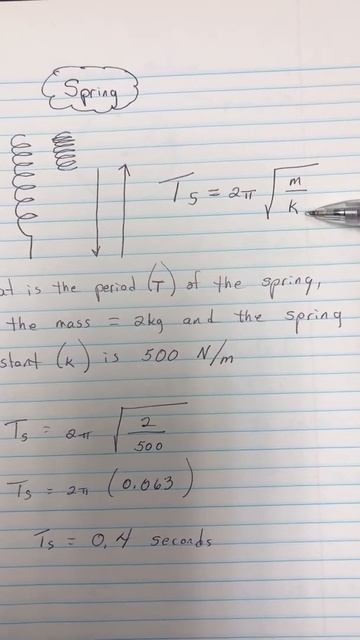 Spring
T_S = 2π √(m/k)
at is the period (T) of the spring,
the mass = 2kg and the spring
stant (k) is 500 N/m
T_S = 2π √(2/500)
T_S = 2π (0.063)
T_S = 0.4 seconds